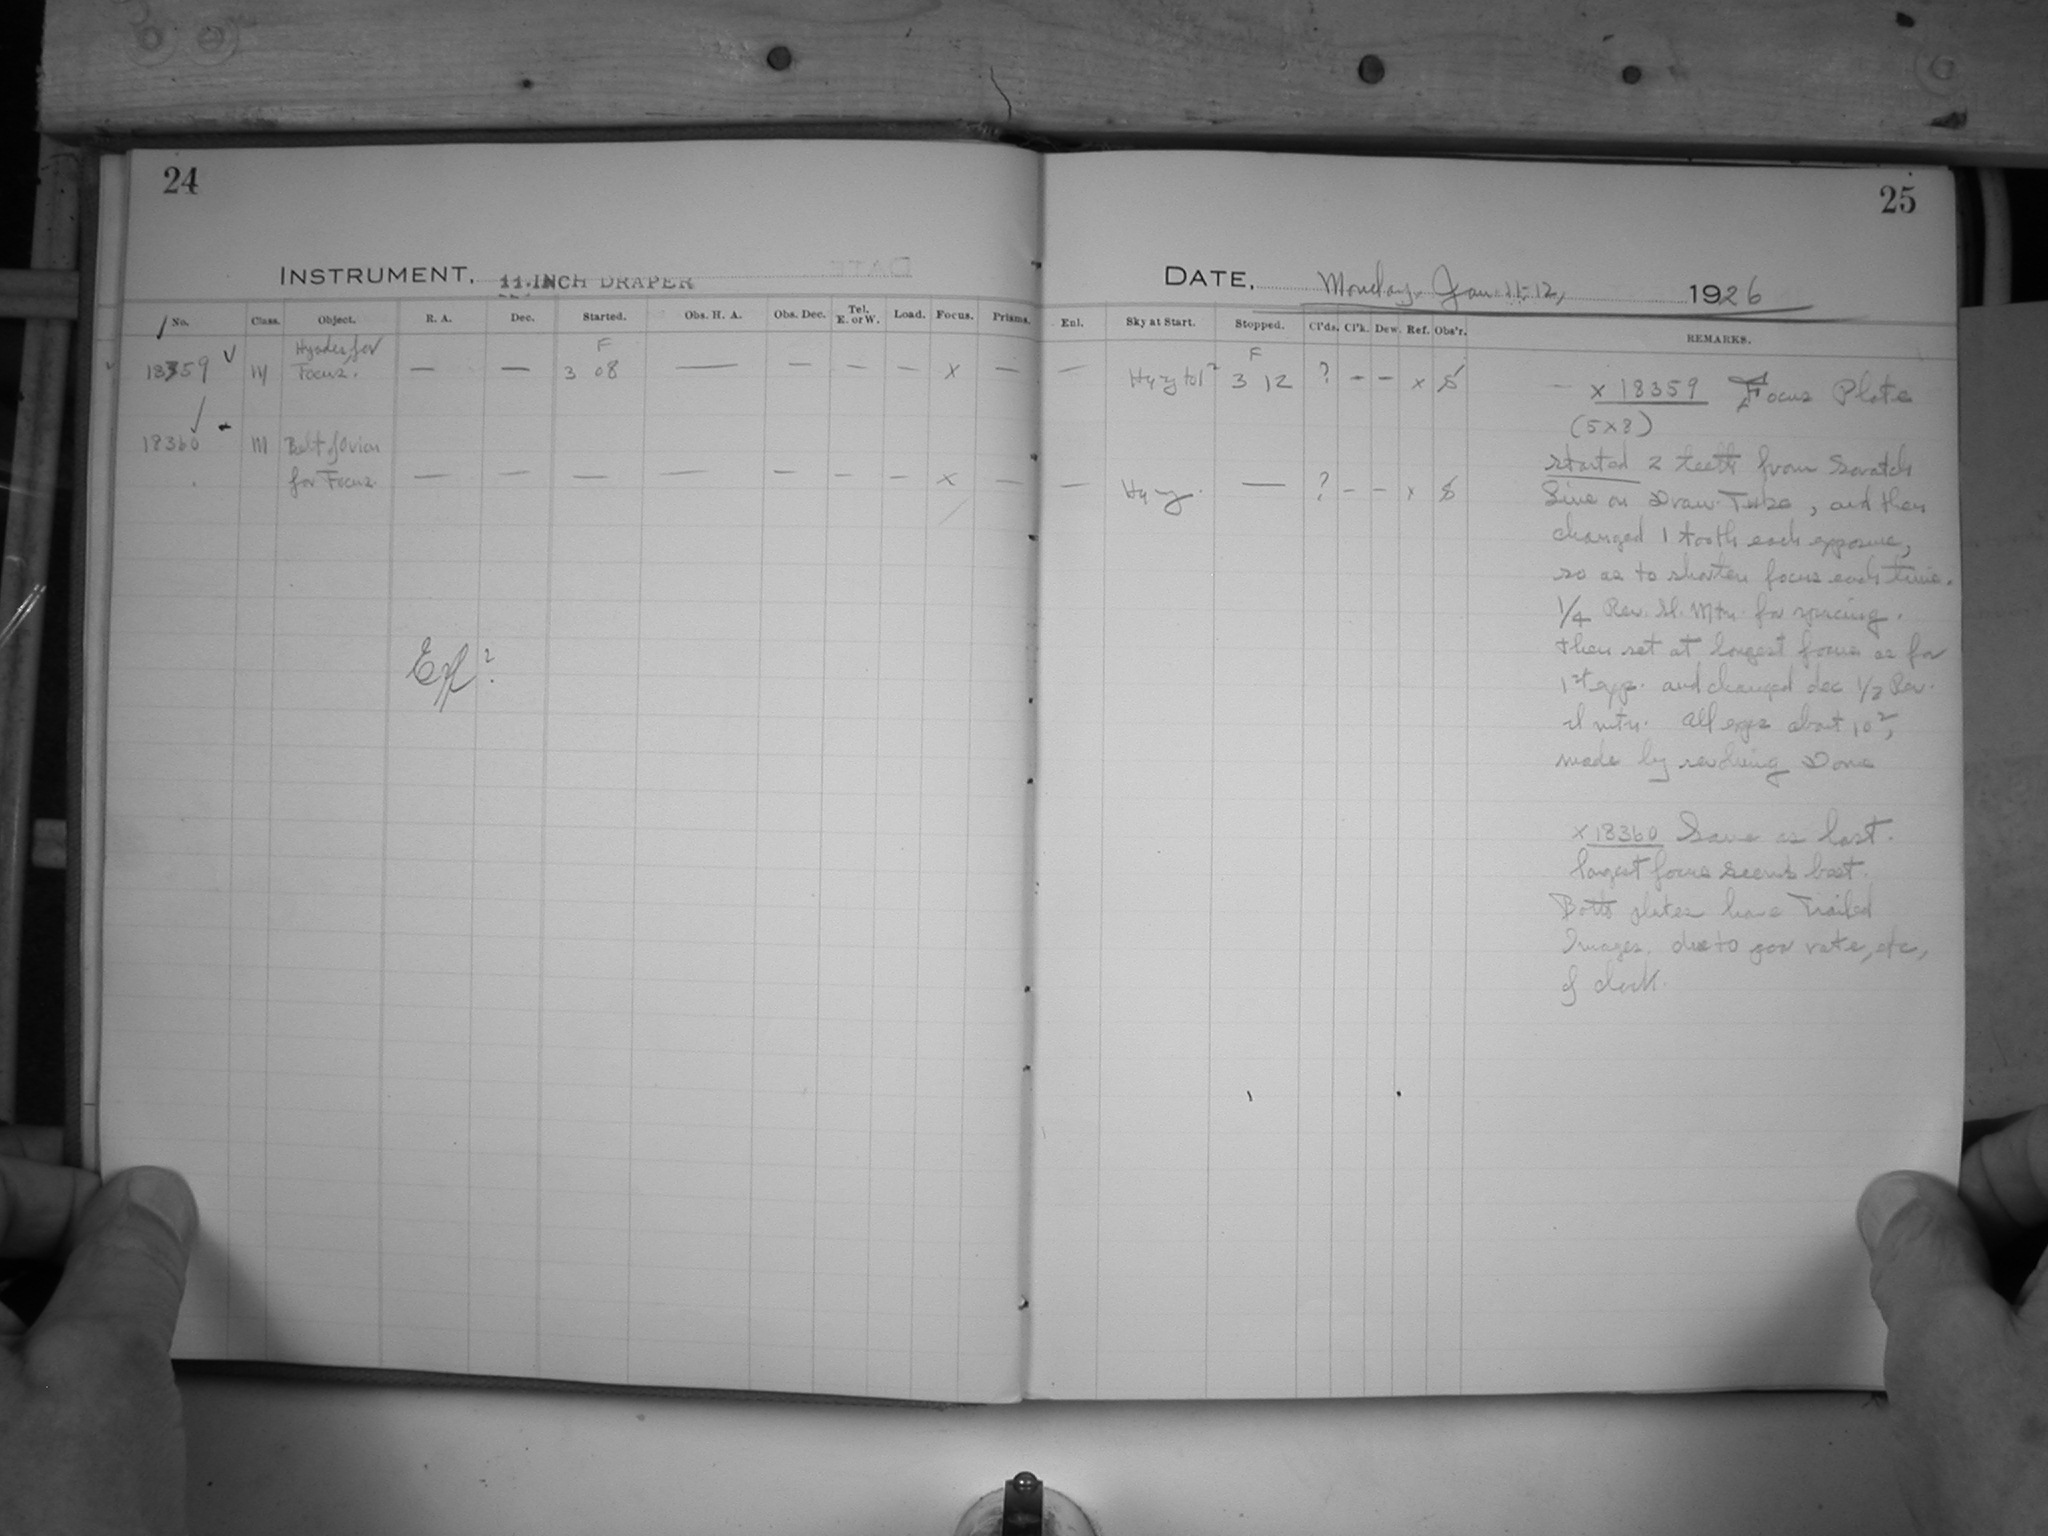 24
25
INSTRUMENT. 11-INCH DRAPER
DATE, Monday, Jan. 11-12, 1926
No. Class. Object. R. A. Dec. Started. Obs. H. A. Obs. Dec. Tel. E. or W. Load. Focus. Prisms. Enl. Sky at Start. Stopped. Cl'ds. Cl'k. Dew. Ref. Obs'r. REMARKS.
Hyades for F F
18359 √ Focus. — — 3 08 — — — — x — — 3 12 ? – – x
18360 Belt of Orion
for Focus. — — — — — — — x — — Hazy. — ? – – x
Eff?
x 18359 Focus Plate
(5x8)
started 2 teeth from Scratch
Line on Draw-Tube, and then
changed 1 tooth each exposure,
so as to shorten focus each time.
1/4 Rev. Sl. Mtn. for spacing.
then set at longest focus as for
1st exp. and changed dec 1/2 Rev.
sl mtn. All exps about 10
made by revolving Dome
x 18360 Same as last.
longest focus seems best.
Both plates have Trailed
Images. due to poor rate, etc,
of clock.